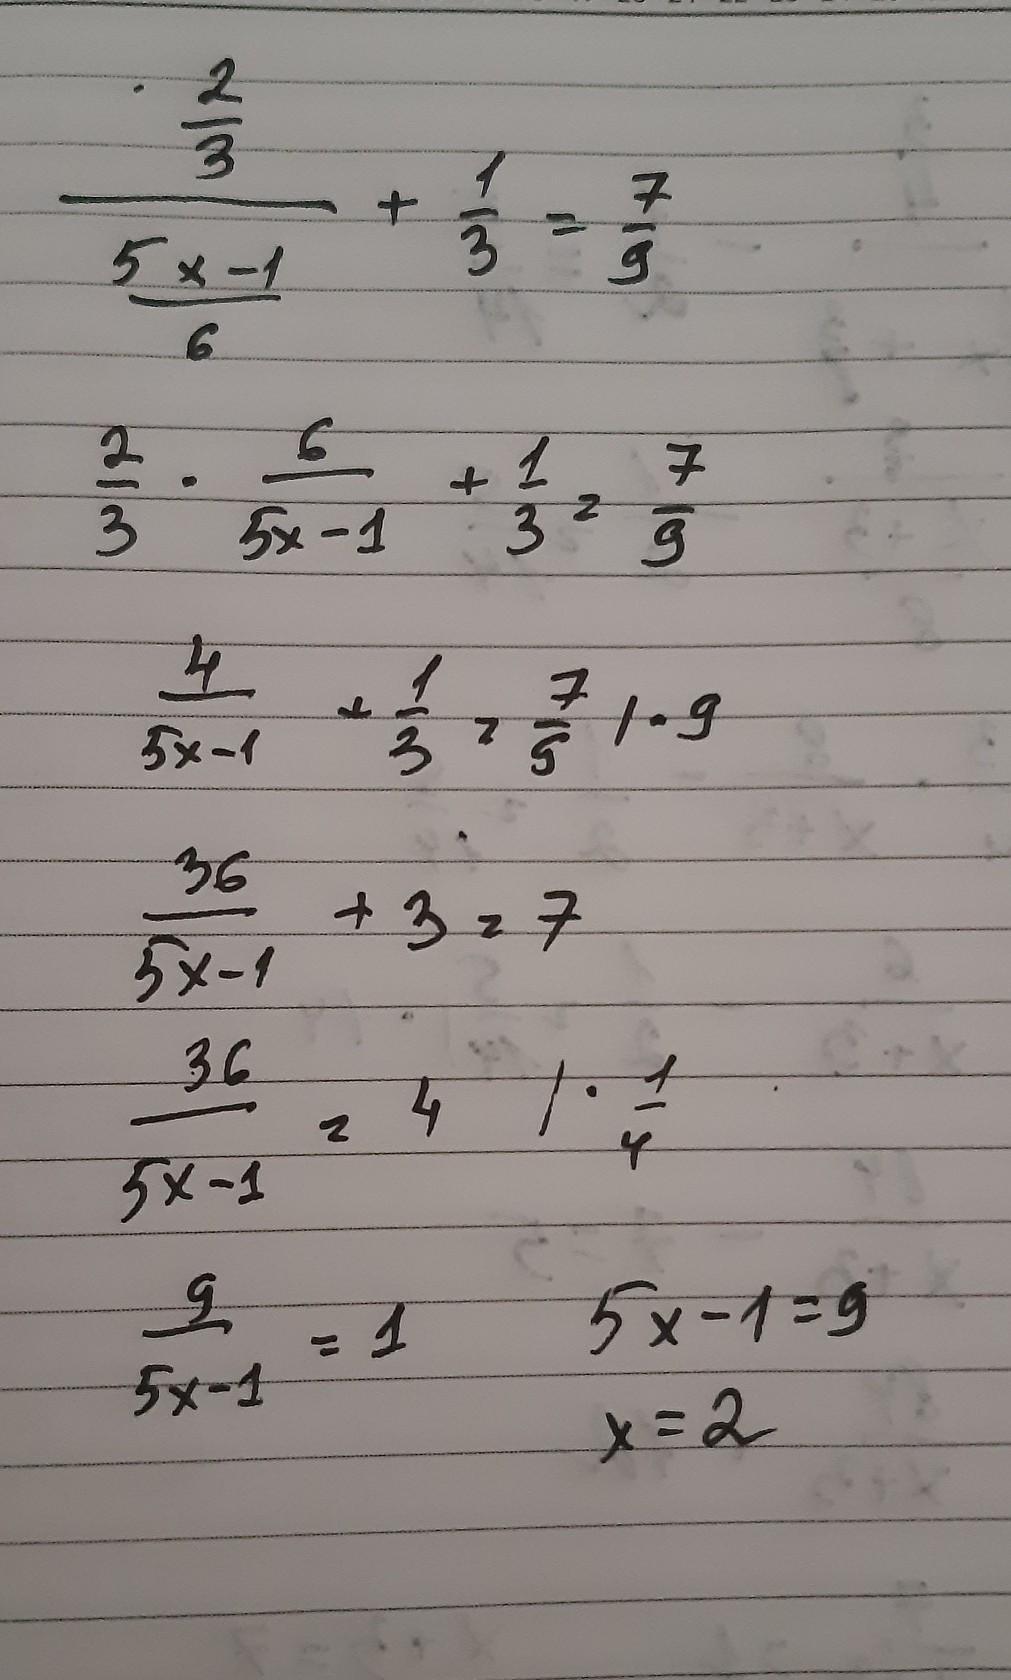 (2/3)/((5x-1)/6) + 1/3 = 7/9
2/3 · 6/(5x-1) + 1/3 = 7/9
4/(5x-1) + 1/3 = 7/9 / · 9
36/(5x-1) + 3 = 7
36/(5x-1) = 4 / · 1/4
9/(5x-1) = 1 5x-1=9
x=2